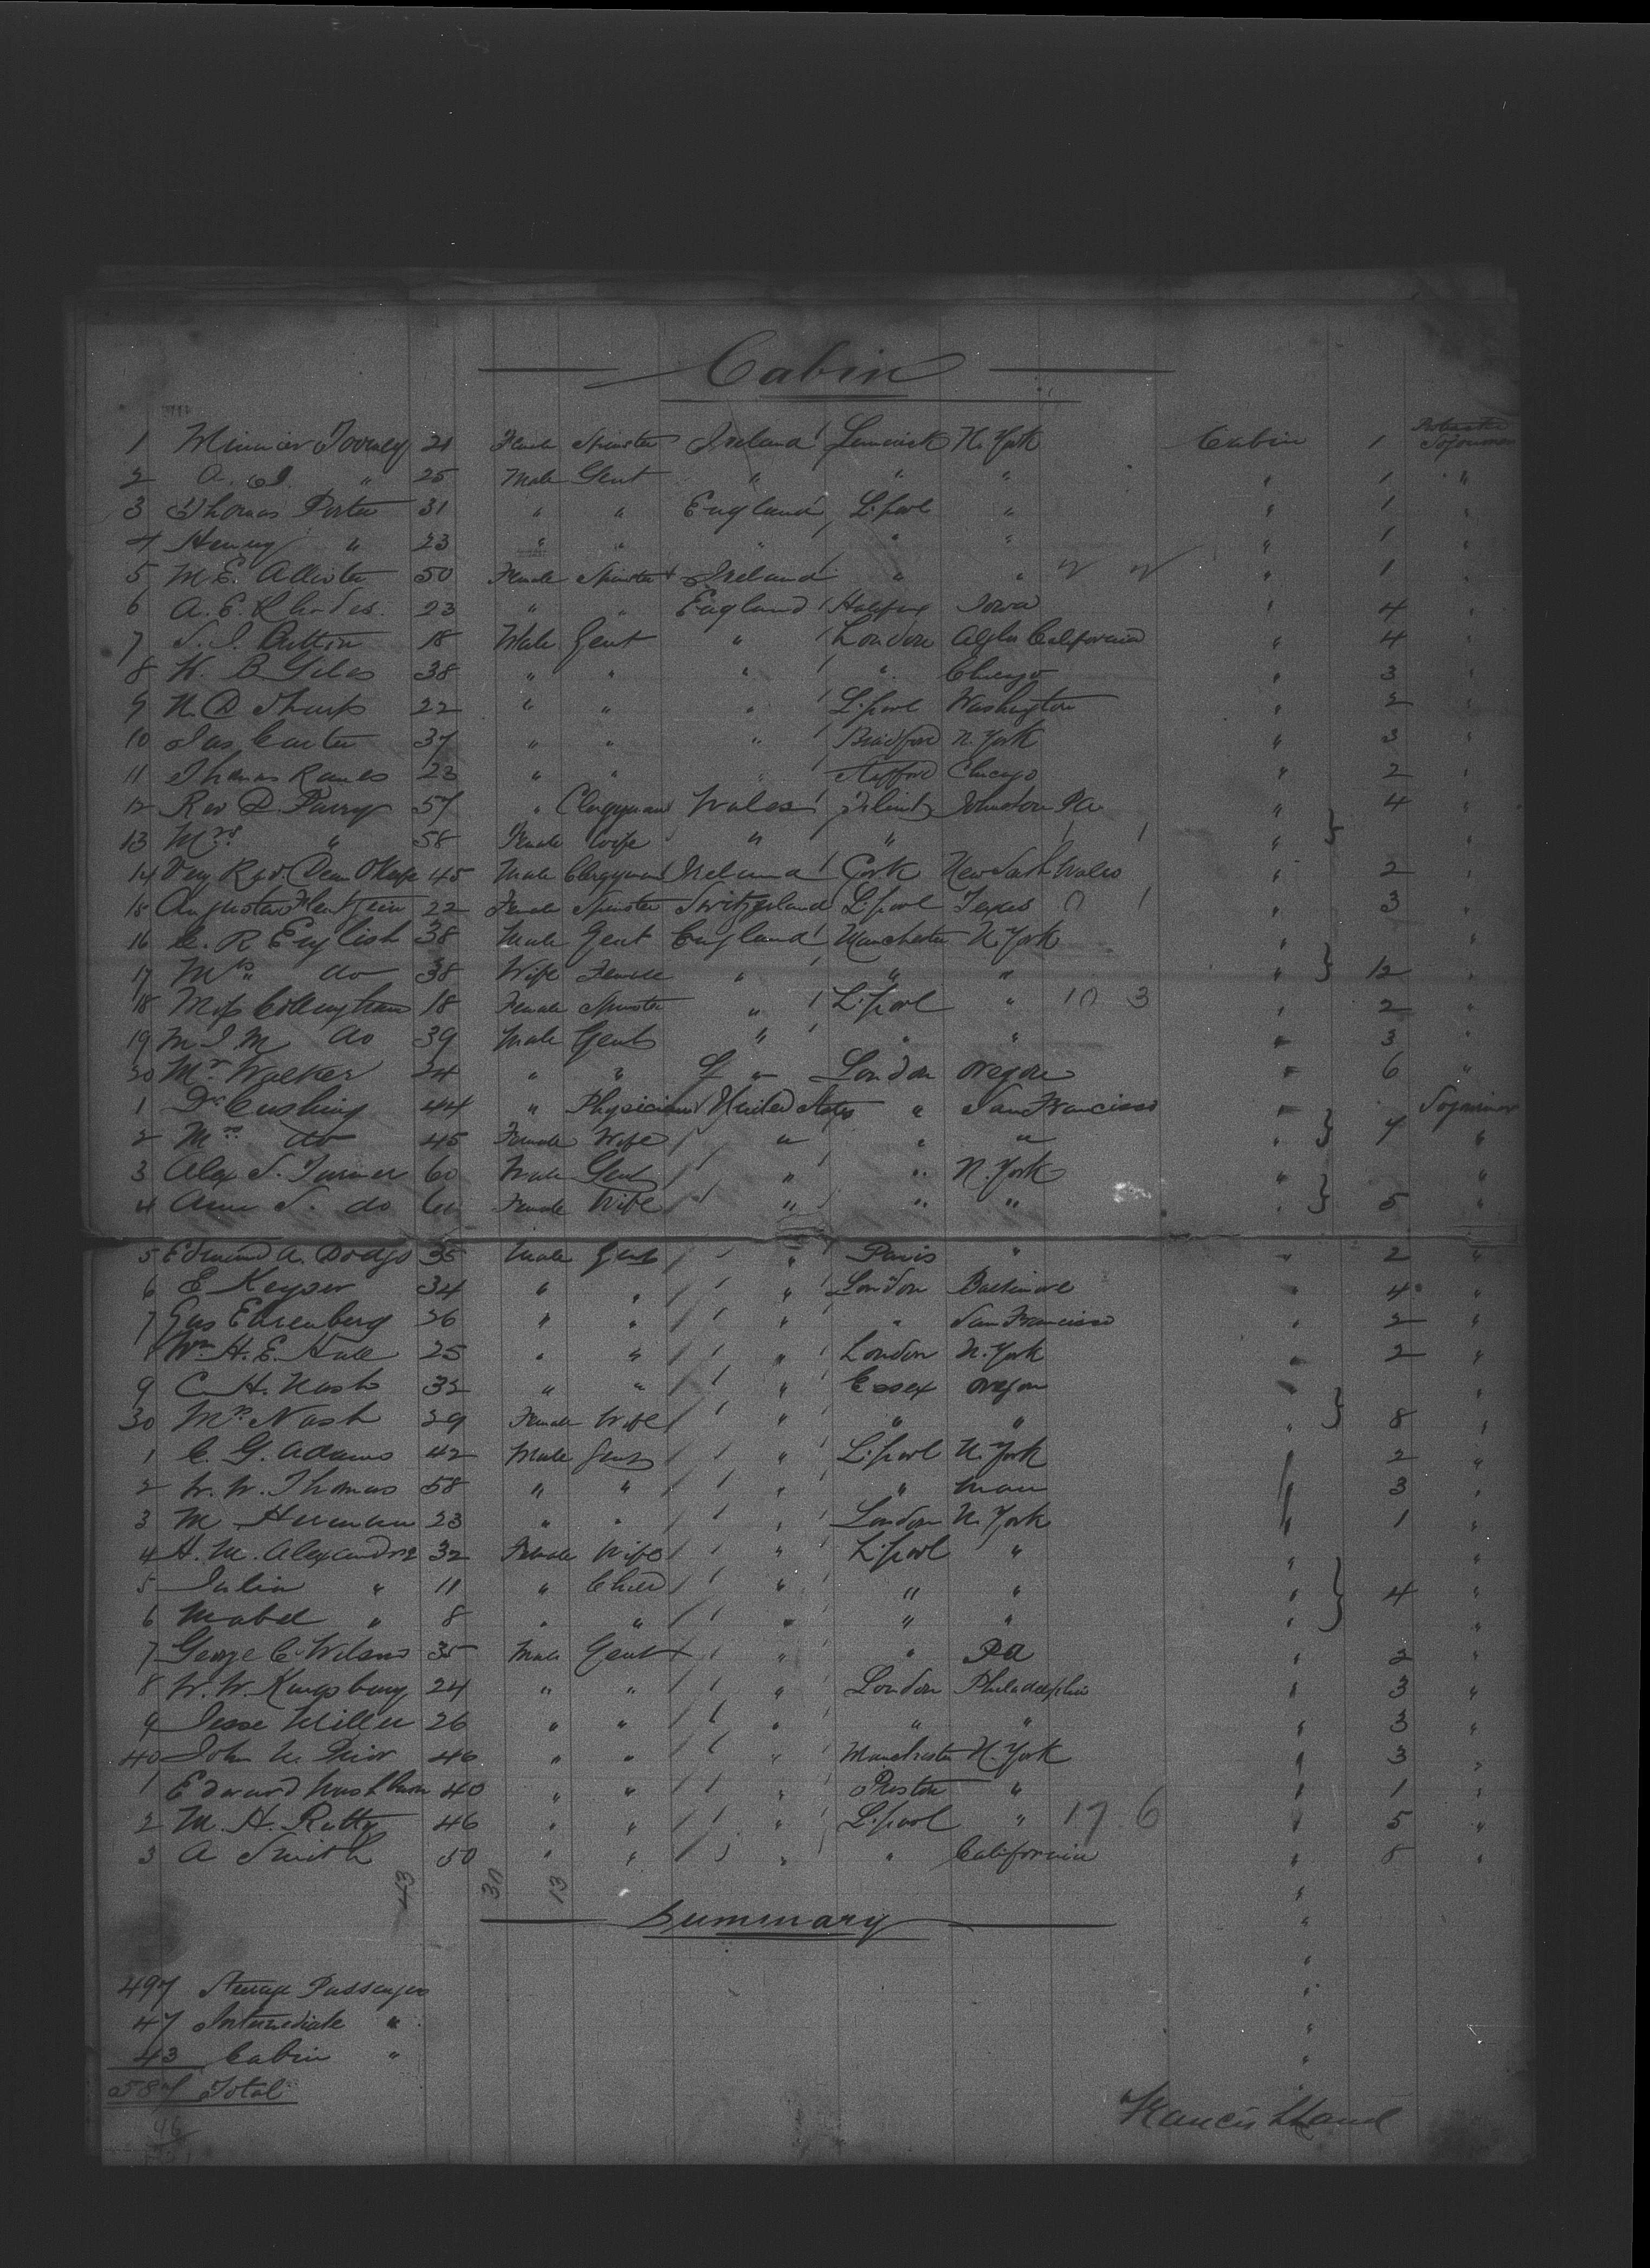 Cabin
1 Minnie Toomey 21 Female Spinster Ireland Limerick N. York Cabin 1 Protracted Sojourner
2 A. " 25 Male Gent " " " " 1 "
3 Thomas Porter 31 " " England L.pool " " 1 "
4 Henry " 23 " " " " " " 1 "
5 M. E. Allister 50 Female Spinster Ireland " " " 1 "
6 A. E. Rhodes 23 " " England Halifax Iowa " 4 "
7 18 Male Gent " London California " 4 "
8 W. B Giles 38 " " " " Chicago " 3 "
9 N. D Tharp 22 " " " L.pool Washington " 2 "
10 Jas Carter 37 " " " Bradford N. York " 3 "
11 Thomas 23 " " " Stafford Chicago " 2 "
12 Rev D. Parry 57 " Clergyman Wales Flint Johnston Pa " } 4 "
13 Mrs " 58 Female Wife " " 1 1 "
14 Very Revd. Dean O'Keefe 45 Male Clergyman Ireland Cork New South Wales " 2 "
15 22 Female Spinster Switzerland L.pool Texas 0 1 " 3 "
16 R English 38 Male Gent England Manchester N. York " "
17 Mrs " do 38 Wife Female " " " " } 12 "
18 Miss Collingham 18 Female Spinster " L.pool " 10 3 " 2 "
19 M J M do 39 Male Gent " " " " 3 "
20 Mr Walker 24 " " " London Oregon " 6 "
1 Dr Cushing 44 " Physician United States " San Francisco " Sojourner
2 Mrs do 45 Female Wife " " " " } 7 "
3 Alex S. Turner 60 Male Gent " " N. York " "
4 Ann S. do 60 Female Wife " " " " } 5 "
5 Edmund A. Dodge 35 Male Gent " Paris " " 2 "
6 E Keyser 34 " " " London Baltimore " 4 "
7 Gus Ehrenberg 26 " " " " San Francisco " 2 "
Wm H. E. Hall 25 " " " London N. York " 2 "
9 C. H. Nash 32 " " " Essex Oregon " "
30 Mrs Nash 29 Female Wife " " " " } 8 "
1 C. G. Adams 42 Male Gent " L.pool N. York " 2 "
2 W. W. Thomas 58 " " " " " 3 "
3 M 23 " " " London N. York " 1 "
4 H. M. Alexandre 32 Female Wife " L.pool " " "
5 Julia " 11 " Child " " " " } 4 "
6 Mabel " 8 " " " " " " "
7 George C. Wilson 35 Male Gent " " Pa " 2 "
8 W. W. Kingsbury 24 " " " London Philadelphia " 3 "
9 Jesse Miller 26 " " " " " " 3 "
40 John 46 " " " Manchester N. York " 3 "
1 Edward Washburn 40 " " " Preston " " 1 "
2 M. H. Rutty 46 " " " L.pool " 17 6 " 5 "
3 A Smith 50 " " " " California " 8 "
43 30 13
Summary
497 Steerage Passengers
47 Intermediate "
43 Cabin "
587 Total
96
Francis